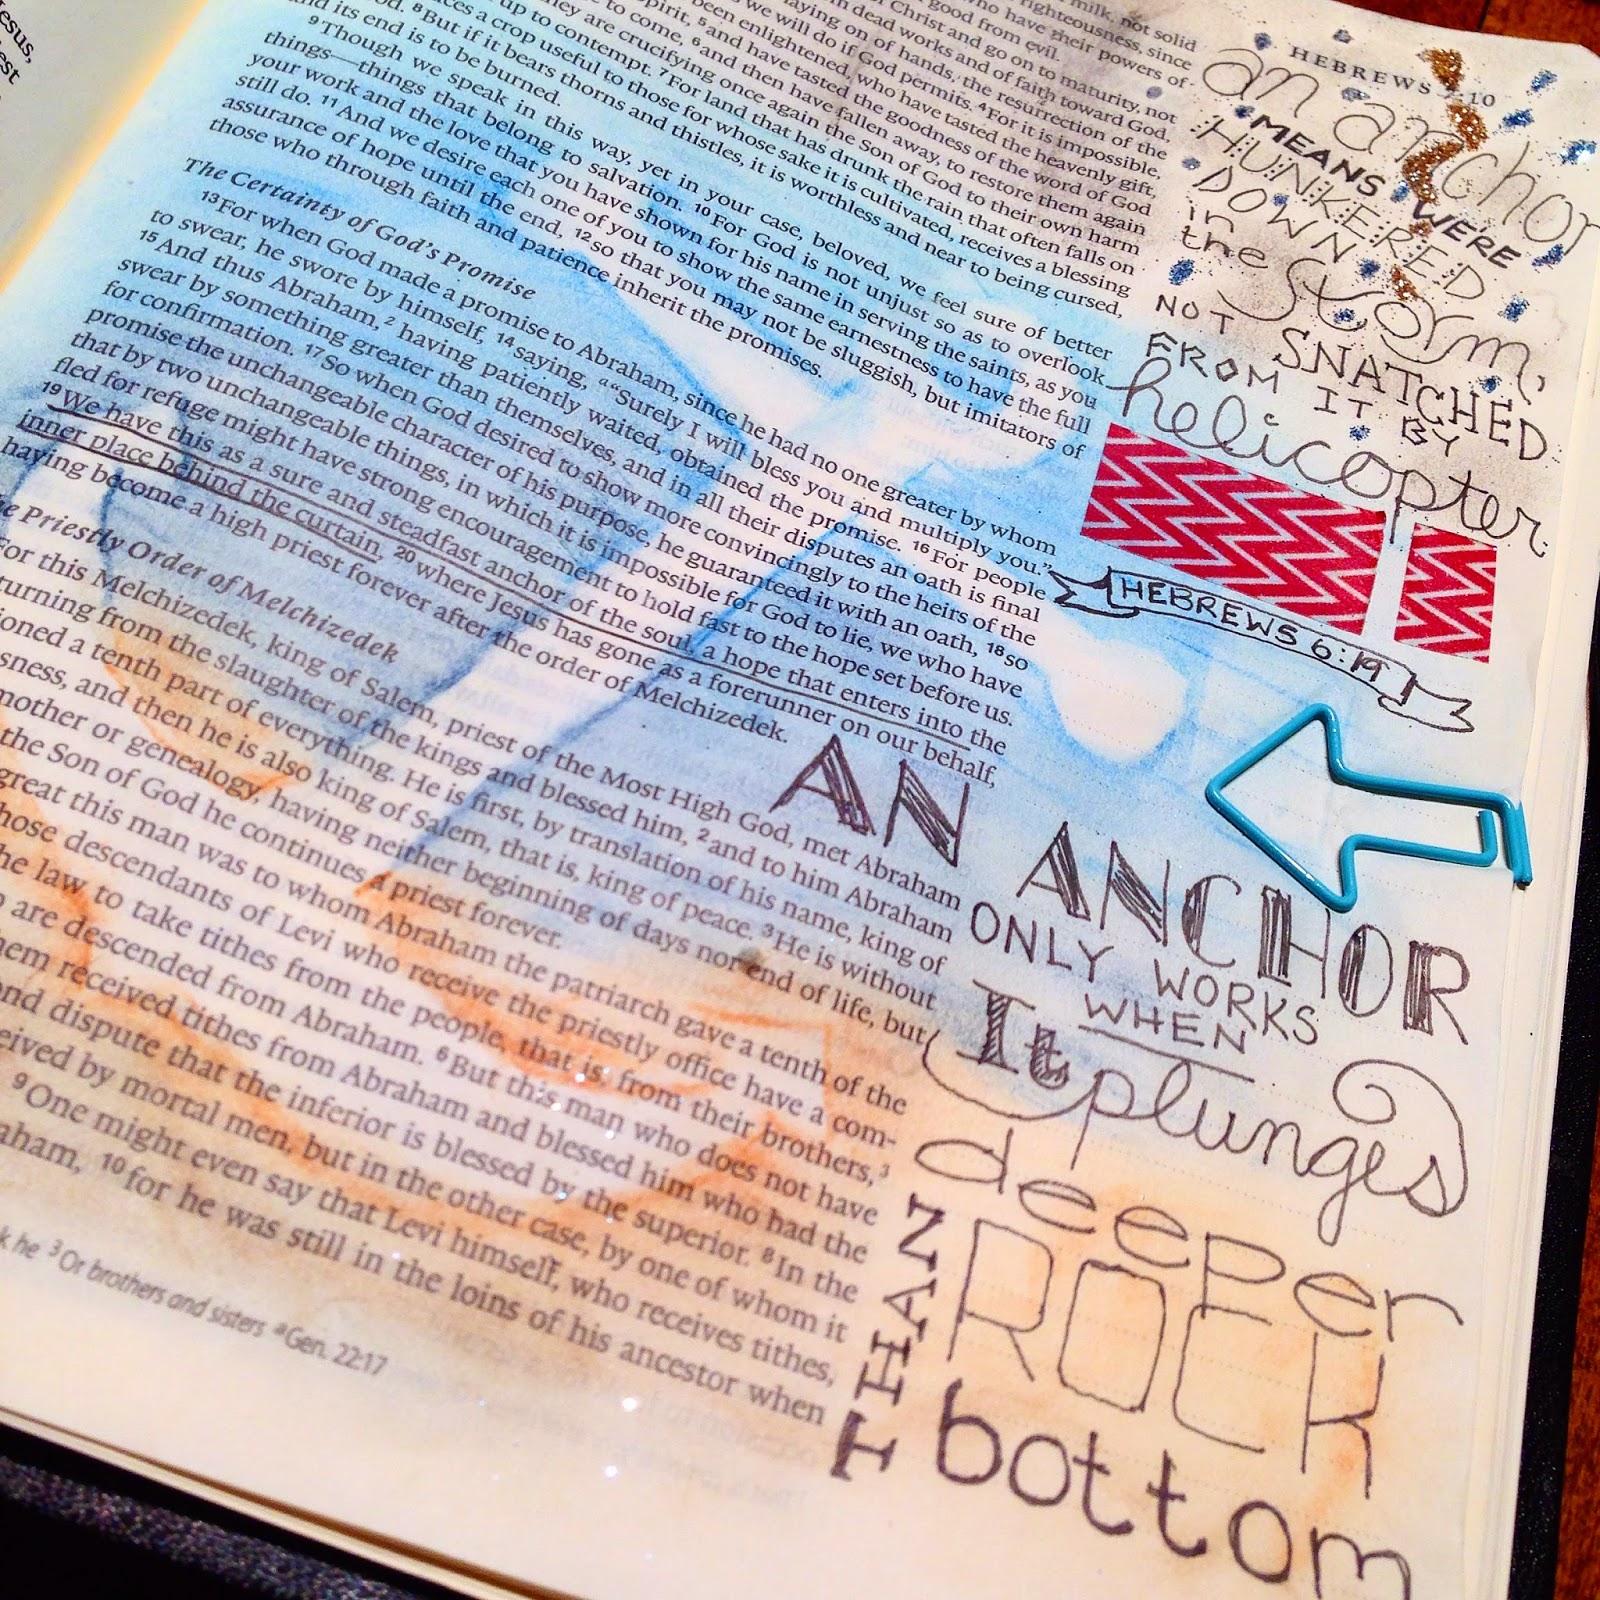 Jesus,
HEBREWS
10
milk, not solid
righteousness, since
have their powers of
good from evil.
Christ and go on to maturity, not
dead works and of faith toward God,
laying on of hands, the resurrection of the
we will do if God permits. 4 For it is impossible,
been enlightened, who have tasted the heavenly gift,
Spirit, 5 and have tasted the goodness of the word of God
to come, 6 and then have fallen away, to restore them again
they are crucifying once again the Son of God to their own harm
up to contempt. 7 For land that has drunk the rain that often falls on
a crop useful to those for whose sake it is cultivated, receives a blessing
God. 8 But if it bears thorns and thistles, it is worthless and near to being cursed,
and its end is to be burned.
9 Though we speak in this way, yet in your case, beloved, we feel sure of better
things—things that belong to salvation. 10 For God is not unjust so as to overlook
your work and the love that you have shown for his name in serving the saints, as you
still do. 11 And we desire each one of you to show the same earnestness to have the full
assurance of hope until the end, 12 so that you may not be sluggish, but imitators of
those who through faith and patience inherit the promises.
The Certainty of God's Promise
13 For when God made a promise to Abraham, since he had no one greater by whom
to swear, he swore by himself, 14 saying, a “Surely I will bless you and multiply you.”
15 And thus Abraham, 2 having patiently waited, obtained the promise. 16 For people
swear by something greater than themselves, and in all their disputes an oath is final
for confirmation. 17 So when God desired to show more convincingly to the heirs of the
promise the unchangeable character of his purpose, he guaranteed it with an oath, 18 so
that by two unchangeable things, in which it is impossible for God to lie, we who have
fled for refuge might have strong encouragement to hold fast to the hope set before us.
19 We have this as a sure and steadfast anchor of the soul, a hope that enters into the
inner place behind the curtain, 20 where Jesus has gone as a forerunner on our behalf,
having become a high priest forever after the order of Melchizedek.
Priestly Order of Melchizedek
For this Melchizedek, king of Salem, priest of the Most High God, met Abraham
turning from the slaughter of the kings and blessed him, 2 and to him Abraham
ioned a tenth part of everything. He is first, by translation of his name, king of
sness, and then he is also king of Salem, that is, king of peace. 3 He is without
mother or genealogy, having neither beginning of days nor end of life, but
the Son of God he continues a priest forever.
great this man was to whom Abraham the patriarch gave a tenth of the
hose descendants of Levi who receive the priestly office have a com-
he law to take tithes from the people, that is, from their brothers, 3
are descended from Abraham. 6 But this man who does not have
hem received tithes from Abraham and blessed him who had the
ond dispute that the inferior is blessed by the superior. 8 In the
eived by mortal men, but in the other case, by one of whom it
9 One might even say that Levi himself, who receives tithes,
aham, 10 for he was still in the loins of his ancestor when
k he 3 Or brothers and sisters a Gen. 22:17
an anchor
MEANS WERE
HUNKERED
DOWN
in
the storm,
NOT SNATCHED
FROM IT BY
helicopter.
HEBREWS 6:19
AN ANCHOR
ONLY WORKS
WHEN
It plunges
deeper
THAN
ROCK
bottom